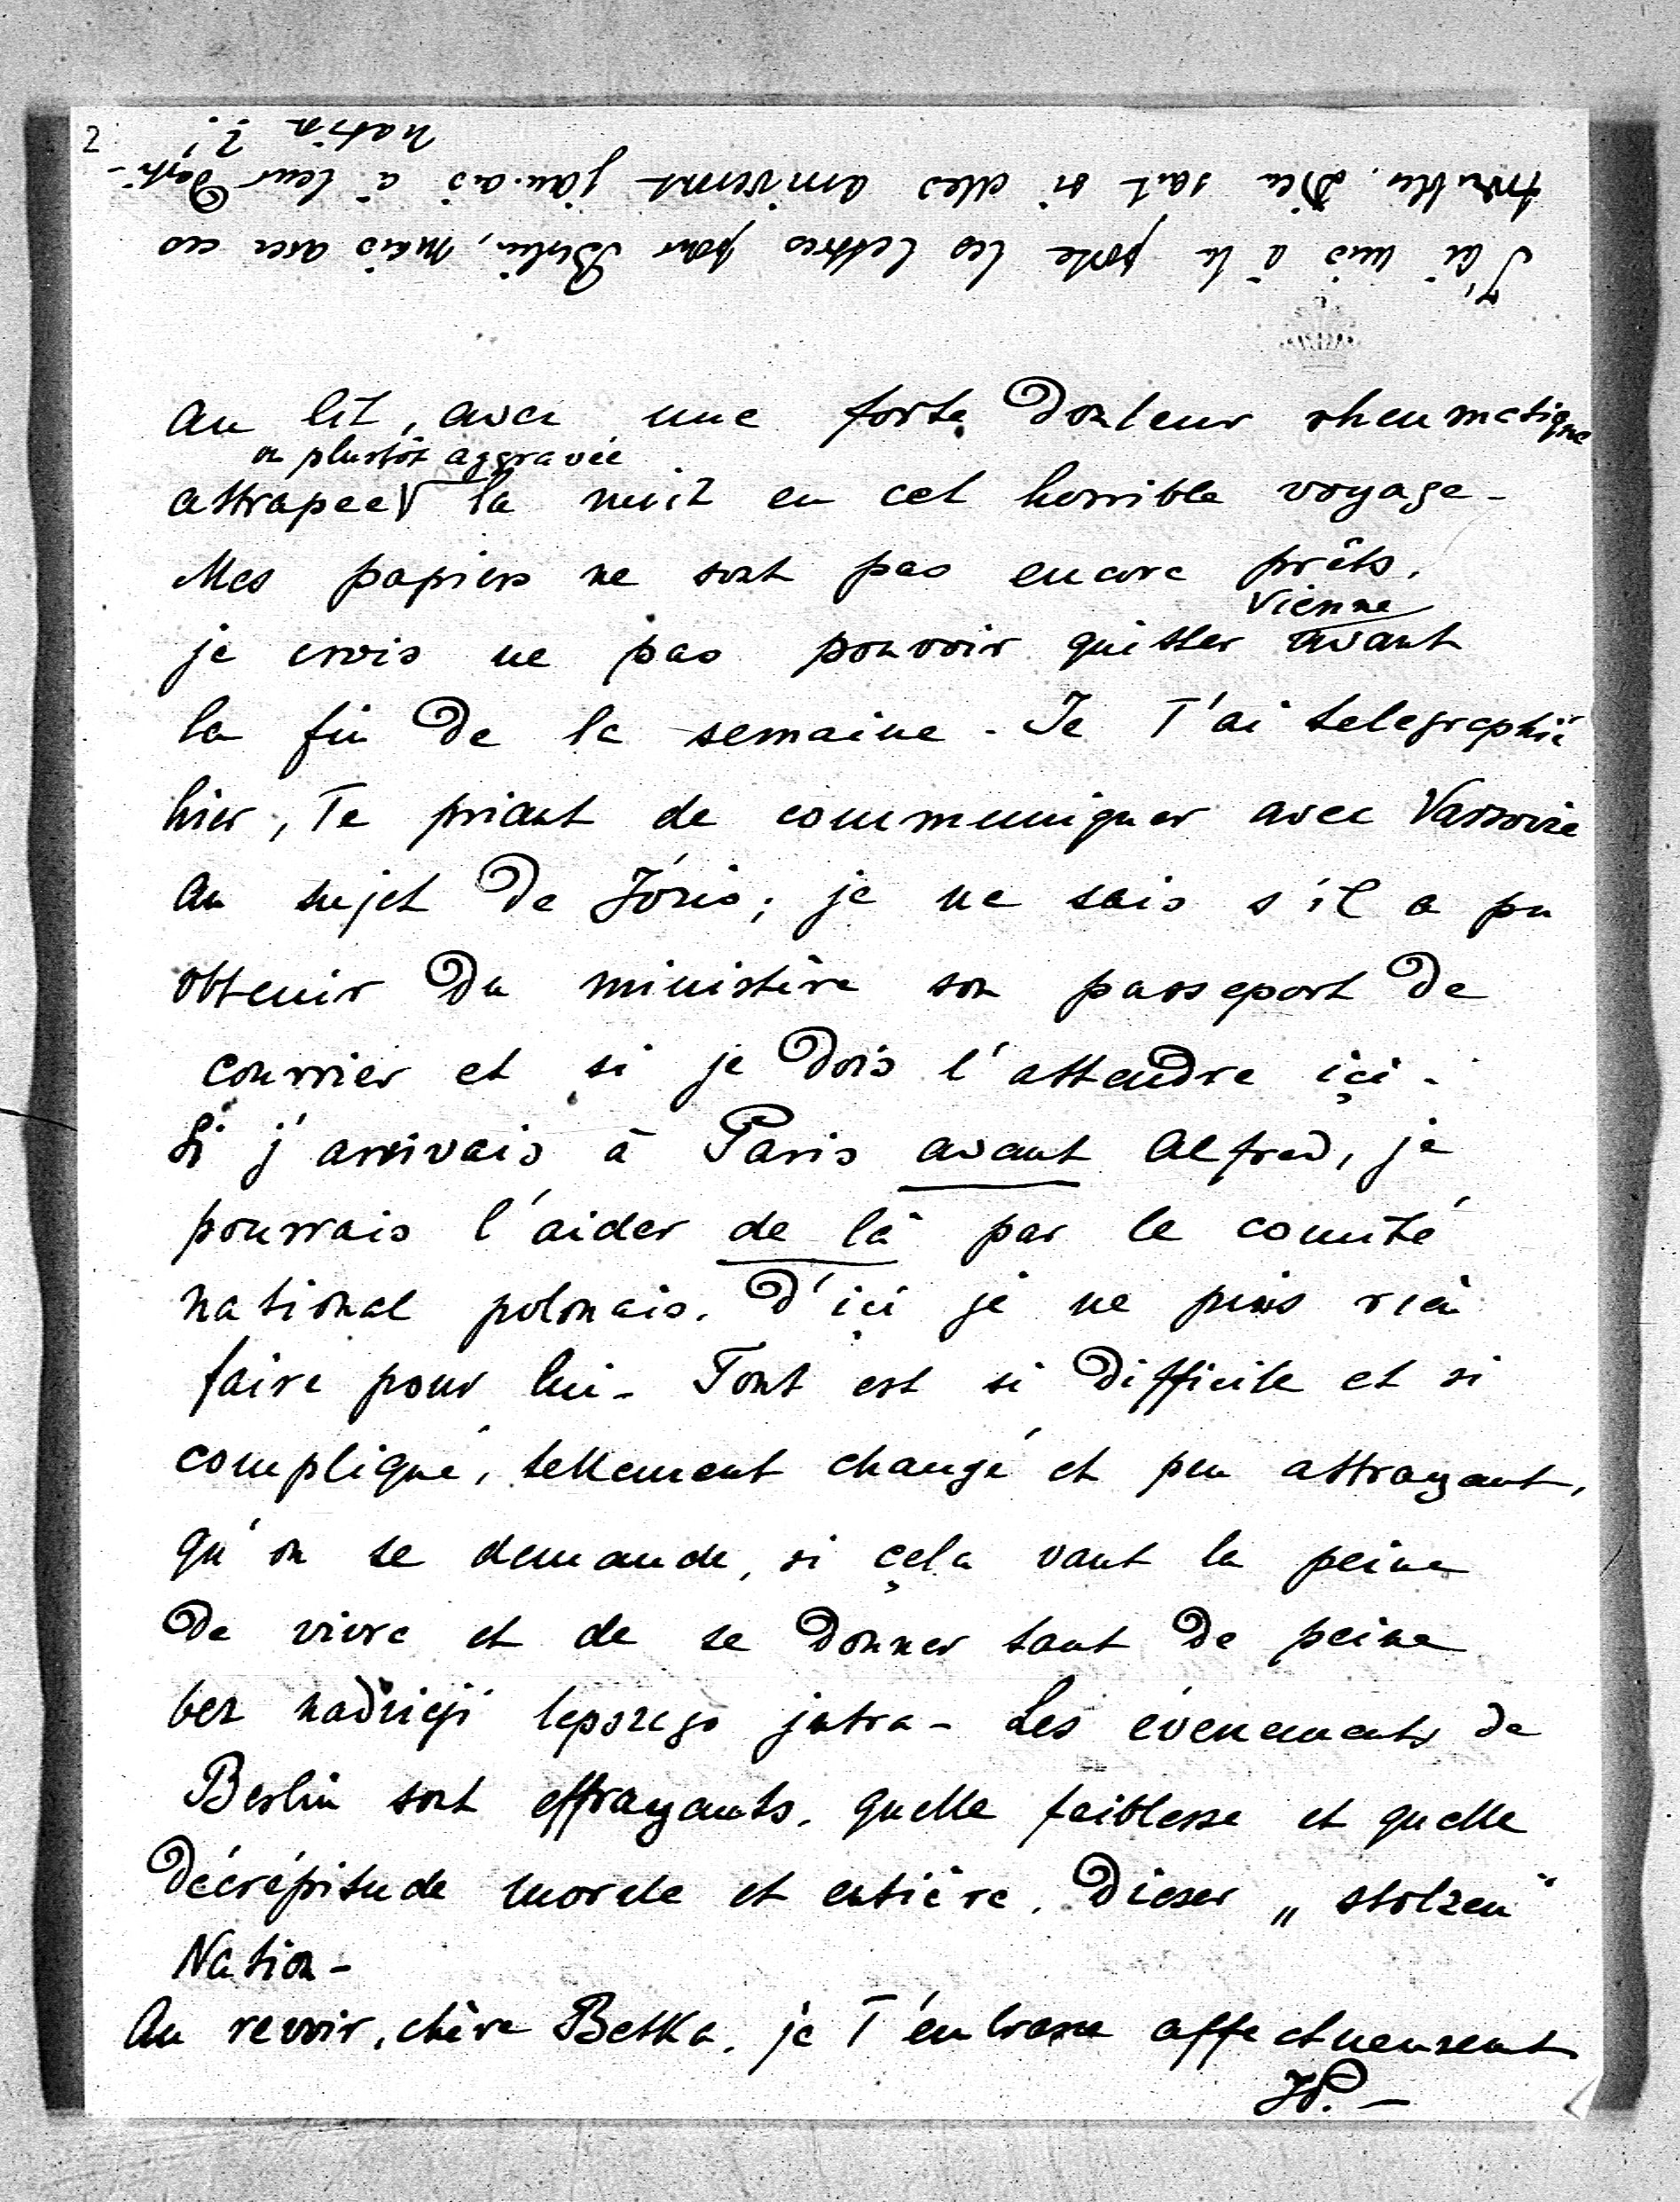 2
J'ai mis à la poste les lettres pour Berlin, mais avec ces
troubles. Dieu sait si elles arriveront jamais à leur Desti-
nation ?!
au lit, avec une forte Douleur rheumatique
ou plustôt aggravée
attrapee la nuit en cet horrible voyage -
Mes papiers ne sont pas encore prêts.
Vienne
je crois ne pas pouvoir quitter avant
la fin De la semaine - Je T'ai telegraphié
hier, Te priant de communiquer avec Varsovie
au sujet De Józio; je ne sais s'il a pu
obtenir Du ministère son passeport De
courrier et si je Dois l'attendre içi -
Si j'arrivais à Paris avant Alfred, je
pourrais l'aider de là par le comité
national polonais. D'içi je ne puis rien
faire pour lui - Tout est si Difficile et si
compliqué, tellement changé et peu attrayant,
qu'on se demande, si çela vaut la peine
De vivre et de se Donner tant De peine
bez nadzieji lepszego jutra - Les évenements de
Berlin sont effrayants. quelle faiblesse et quelle
Décrépitude morale et entière. Dieser „stolzen"
Nation -
Au revoir, chère Betka. je T'embrasse affectueusement
JP. -